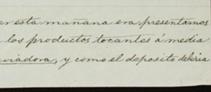 er esta mañana era presentamos
los productos tocantes á media
viadora, y como el deposito debiria